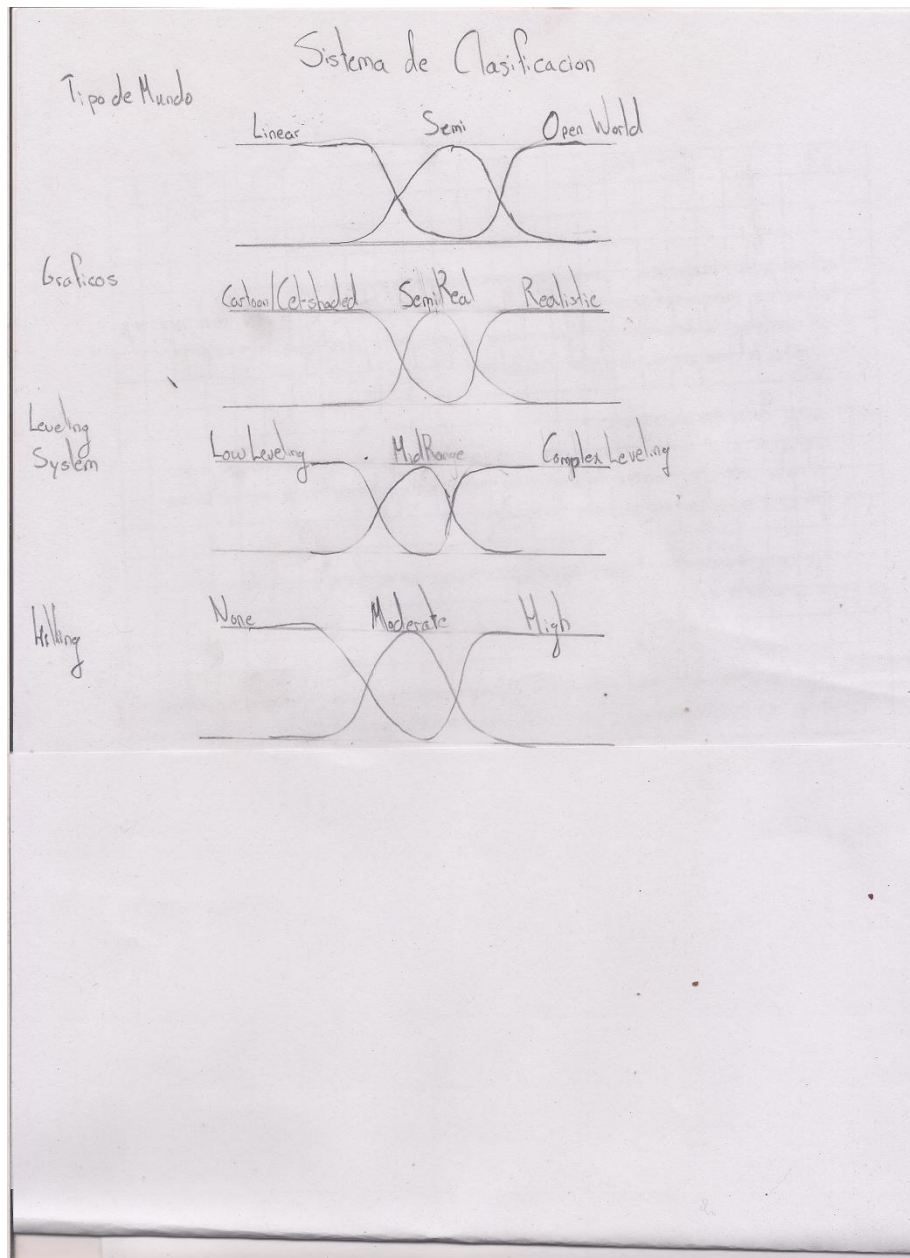 Sistema de Clasificacion
Tipo de Mundo
Linear Semi Open World
Graficos
Cartoon/Cel-shaded SemiReal Realistic
Leveling
System
Low Leveling MidRange Complex Leveling
Killing
None Moderate High